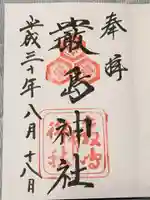 奉拝
厳島神社
平成三十年八月十八日